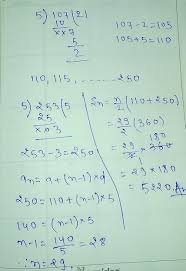 5) 107 (21
10
××7
5
2
107 - 2 = 105
105 + 5 = 110
110, 115, ........ 250
5) 253 (5
25
×03
253 - 3 = 250
an = a + (n-1) × d
250 = 110 + (n-1) × 5
140 = (n-1) × 5
n-1 = 140/5 = 28
∴ n = 29
Sn = n/2 (110 + 250)
= 29/2 (360)
= 29/2 × 360 180
= 29 × 180
= 5220 An